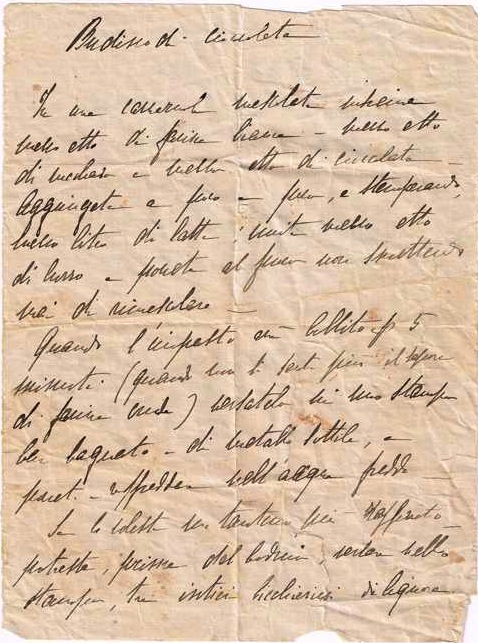 Budino di cioccolata
In una casseruola mescolate insieme
mezzo etto di farina bianca – mezzo etto
di zucchero e mezzo etto di cioccolata –
Aggiungete a poco a poco, e stemperando,
mezzo litro di latte; unite mezzo etto
di burro e ponete al fuoco non smettendo
mai di rimescolare –
Quando l'impasto avrà bollito p 5
minuti (quando non si sarà più il sapore
di farina cruda) versatelo in uno stampo
ben bagnato – di metallo sottile, e
ponete a raffreddare nell'acqua fredda
Se lo volete un tantino più raffinato
potreste, prima del budino, versare nello
stampo, tre interi bicchierini di liquore